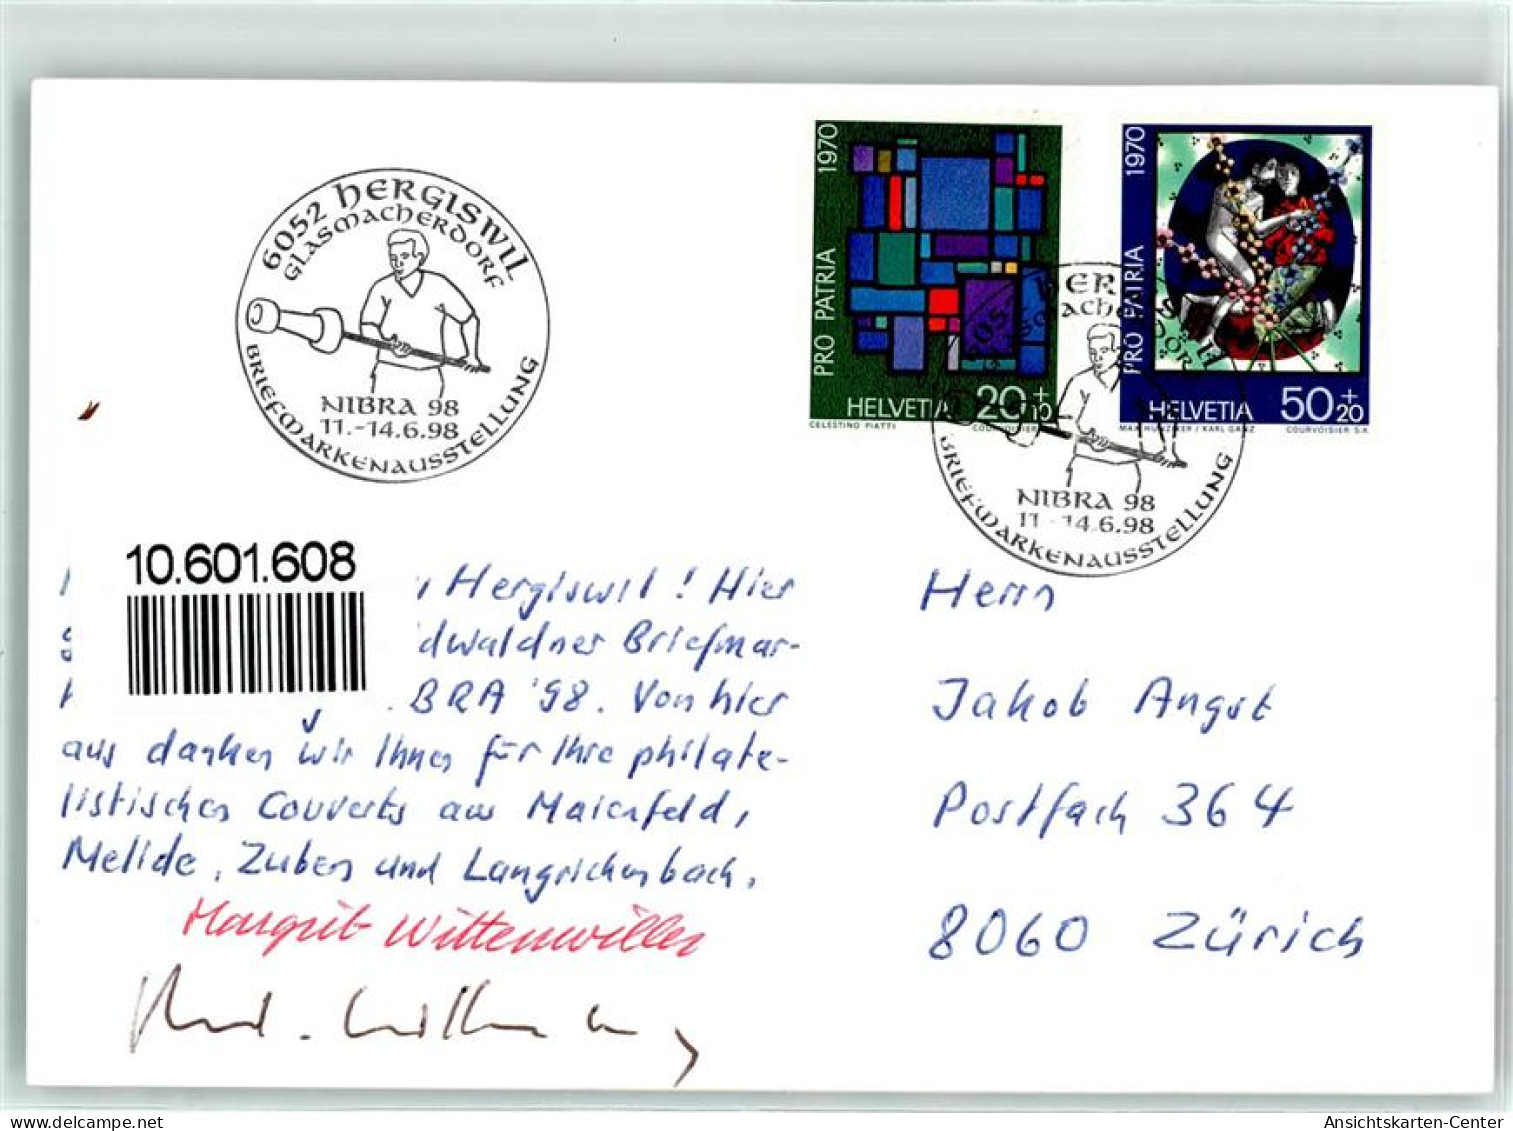 6052 HERGISWIL
GLASMACHERDORF
NIBRA 98
11.-14.6.98
BRIEFMARKENAUSSTELLUNG
PRO PATRIA 1970
HELVETIA 20+10
CELESTINO PIATTI
PRO PATRIA 1970
HELVETIA 50+20
MAX HUNZIKER / KARL GANZ COURVOISIER S.A.
NIBRA 98
11.-14.6.98
BRIEFMARKENAUSSTELLUNG
10.601.608
Hergiswil! Hier
dwaldner Briefmar-
BRA '98. Von hier
aus danken wir Ihnen für Ihre philate-
listischen Couverts aus Maienfeld,
Melide, Zuben und Langrickenbach.
Margrit Wittenwiller
Herrn
Jakob Angst
Postfach 364
8060 Zürich
Ansichtskarten-Center